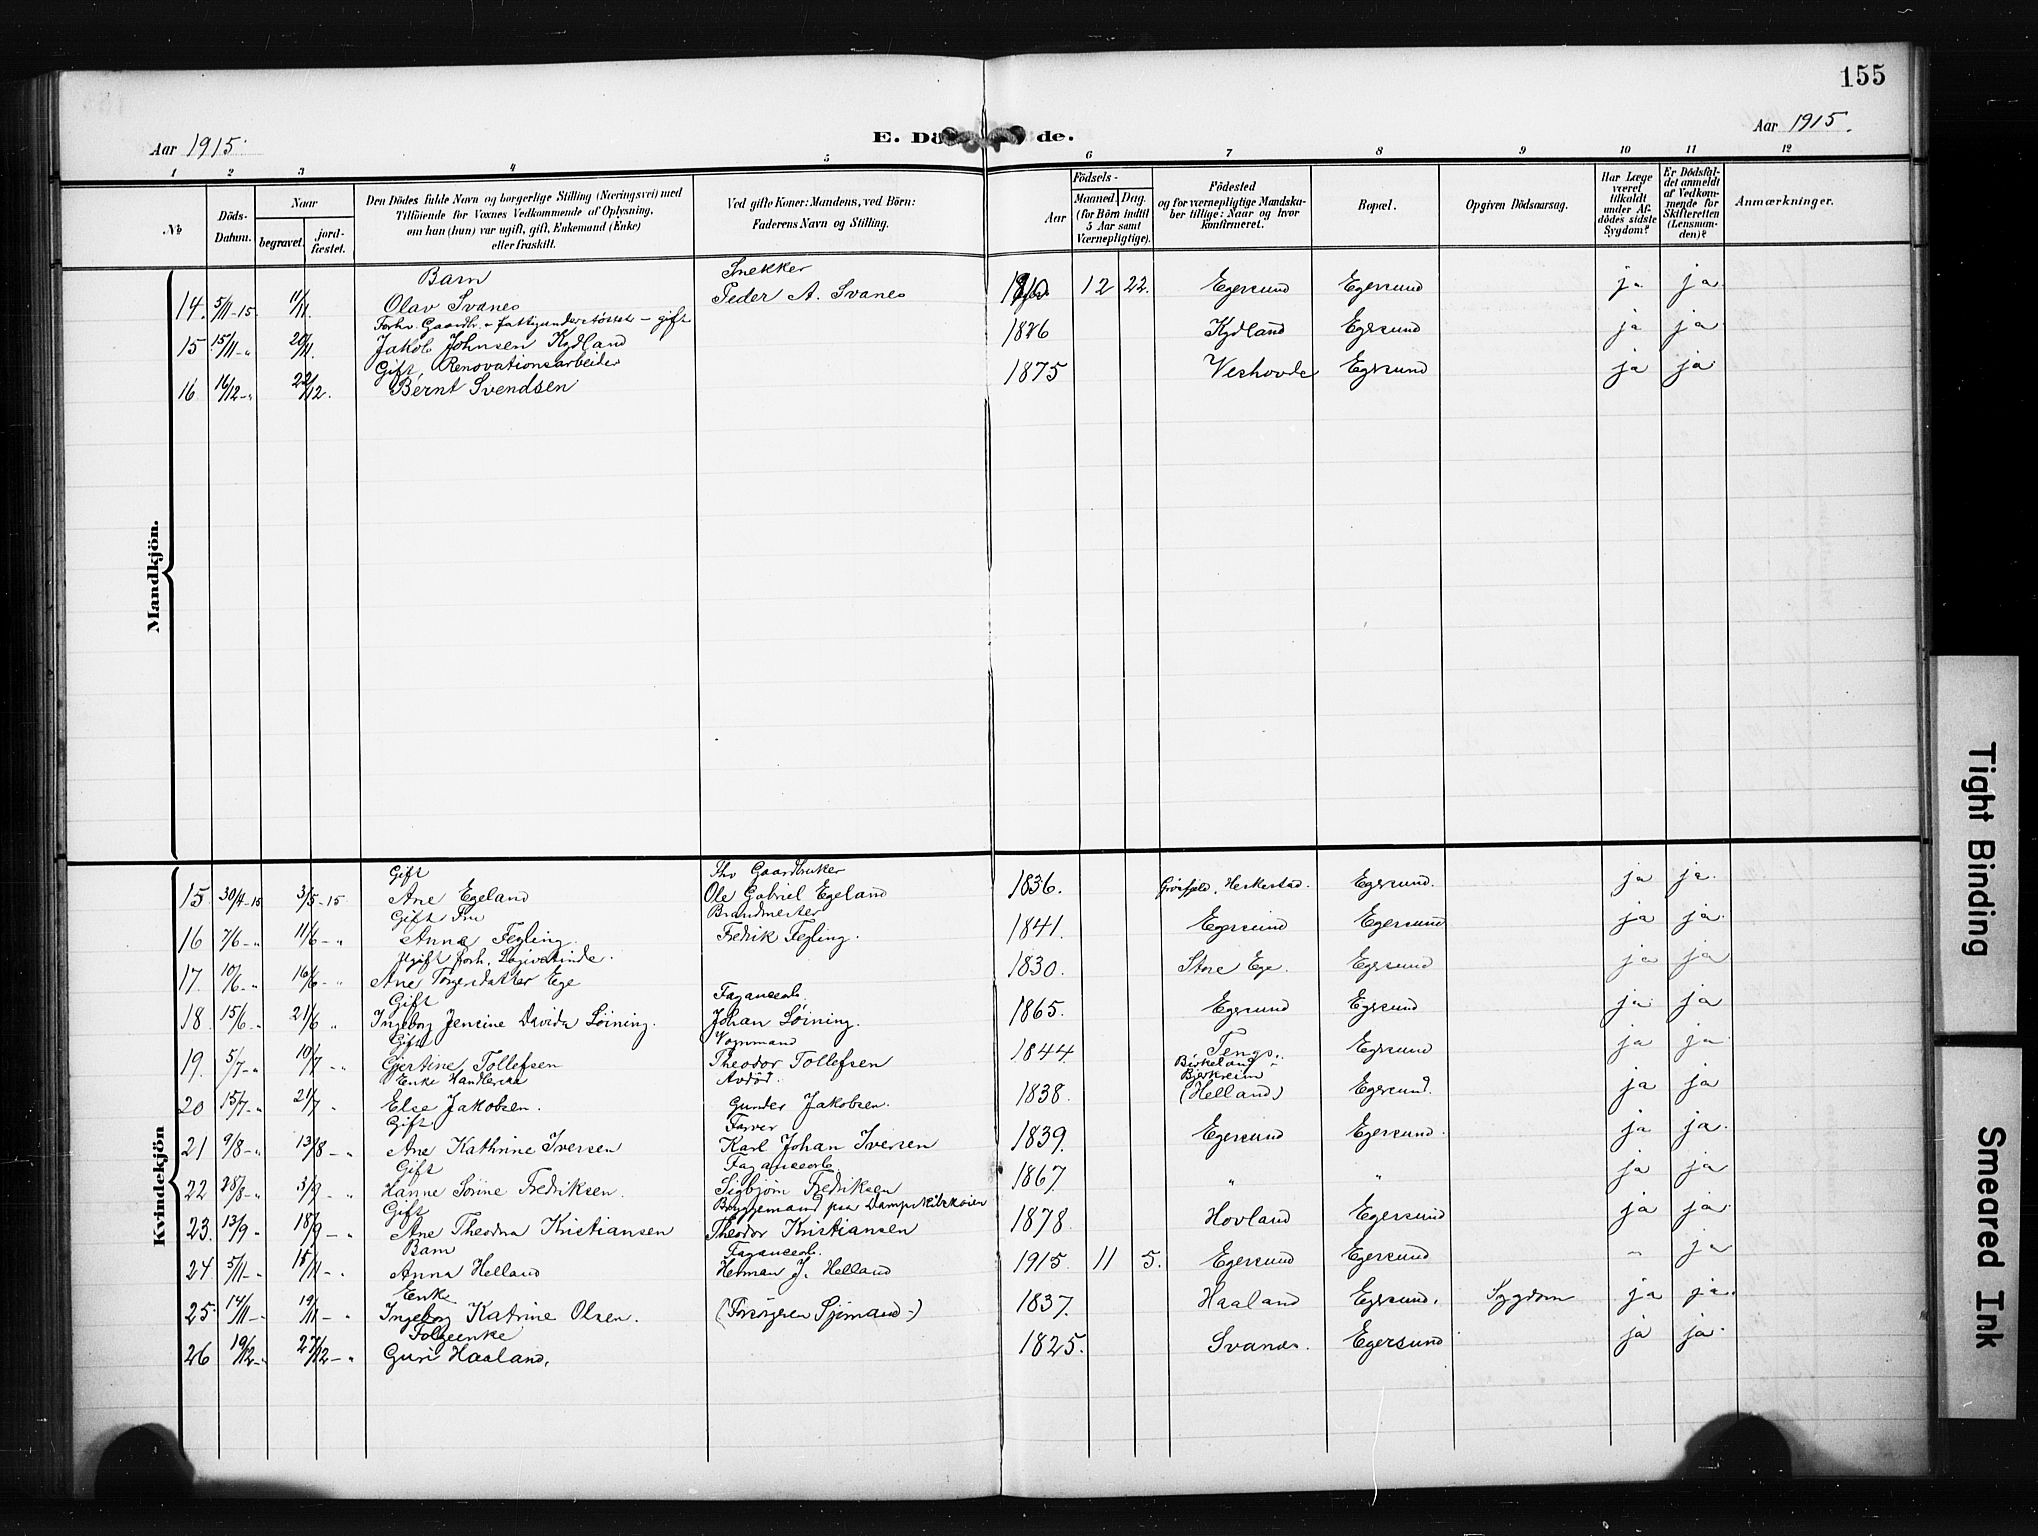 155
Aar 1915.
E. Dö de.
Aar 1915.
1 2 3 4 5 6 7 8 9 10 11 12
№
Döds-Datum.
Naar
begravet.
jord-fæstet.
Den Dödes fulde Navn og borgerlige Stilling (Næringsvei) med
Tilföiende for Voxnes Vedkommende af Oplysning,
om han (hun) var ugift, gift, Enkemand (Enke)
eller fraskilt.
Ved gifte Koner: Mandens, ved Börn:
Faderens Navn og Stilling.
Födsels-
Aar
Maaned.
Dag.
(for Börn indtil
5 Aar samt
Værnepligtige).
Födested
og for værnepligtige Mandska-
ber tillige: Naar og hvor
konfirmeret.
Bopæl.
Opgiven Dödsaarsag.
Har Læge
været
tilkaldt
under Af-
dödes sidste
Sygdom?
Er Dödsfal-
det anmeldt
af Vedkom-
mende for
Skifteretten
(Lensman-
den)?
Anmærkninger.
Mandkjön.
Barn Snekker
14. 5/11-15 11/11. Olav Svanes Peder A. Svanes 12 22. Egersund Egersund ja ja
Forhv. Gaardbr. - gift
15 15/11-" 20/11. Jakob Johnsen Kydland 1826 Kydland Egersund ja ja
Gift, Renovationsarbeider
16 16/12-" 22/12. Bernt Svendsen 1875 Veshovde Egersund ja ja
Kvindekjön
Gift Fhv Gaardbruker
15 30/4-15 3/5-15 Ane Egeland Ole Gabriel Egeland 1836. Heskestad. Egersund. ja ja.
Gift Fru Brandmester
16 7/6-" 11/6-" Anna Fegling. Fredrik Fegling. 1841. Egersund Egersund ja ja.
Ugift forh.
17. 10/6-" 16/6-" Ane Torgersdatter Ege 1830. Store Ege. Egersund ja ja
Gift Fajancearb.
18 15/6-" 21/6 " Ingeborg Jensine Davida Löining. Johan Löining. 1865. Egersund Egersund ja ja
Gift Vognmand
19. 5/7-" 10/7 " Gjertine Tollefsen Theodor Tollefsen 1844 Tengs. Egersund ja ja
Enke Handlerske Avdöd. Birkeland - Bjerkreim
20 15/7-" 21/7 " Else Jakobsen. Gunder Jakobsen. 1838. (Helland) Egersund. ja ja
Gift Farver
21 9/8-" 13/8-" Ane Kathrine Iversen Karl Johan Iversen 1839. Egersund Egersund ja ja.
Gift Fajancearb.
22 28/8-" 3/9-" Hanne Sörine Fredriksen. Sigbjörn Fredriksen 1867. " " ja ja
Gift Bryggemand paa Dampskibskaien
23. 13/9-" 18/9-" Ane Theodora Kristiansen Theodor Kristiansen 1878. Hovland Egersund ja ja.
Barn Fajancearb.
24 5/11-" 15/11-" Anna Helland Herman J. Helland 1915. 11 5. Egersund Egersund - ja
Enke
25. 14/11-" 19/11-" Ingeborg Katrine Olsen. 1837. Haaland Egersund. Sygdom ja ja.
Folgeenke
26 19/12-" 27/12-" Guri Haaland. 1825. Svanes. Egersund ja ja.
Tight Binding
Smeared Ink